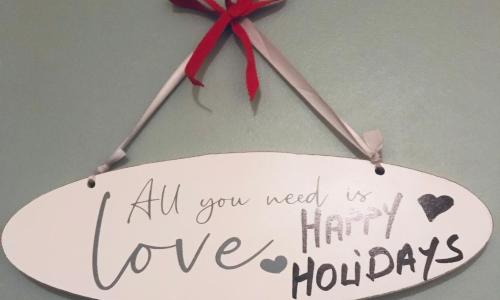 All you need is
love
HAPPY
HOLiDAYS